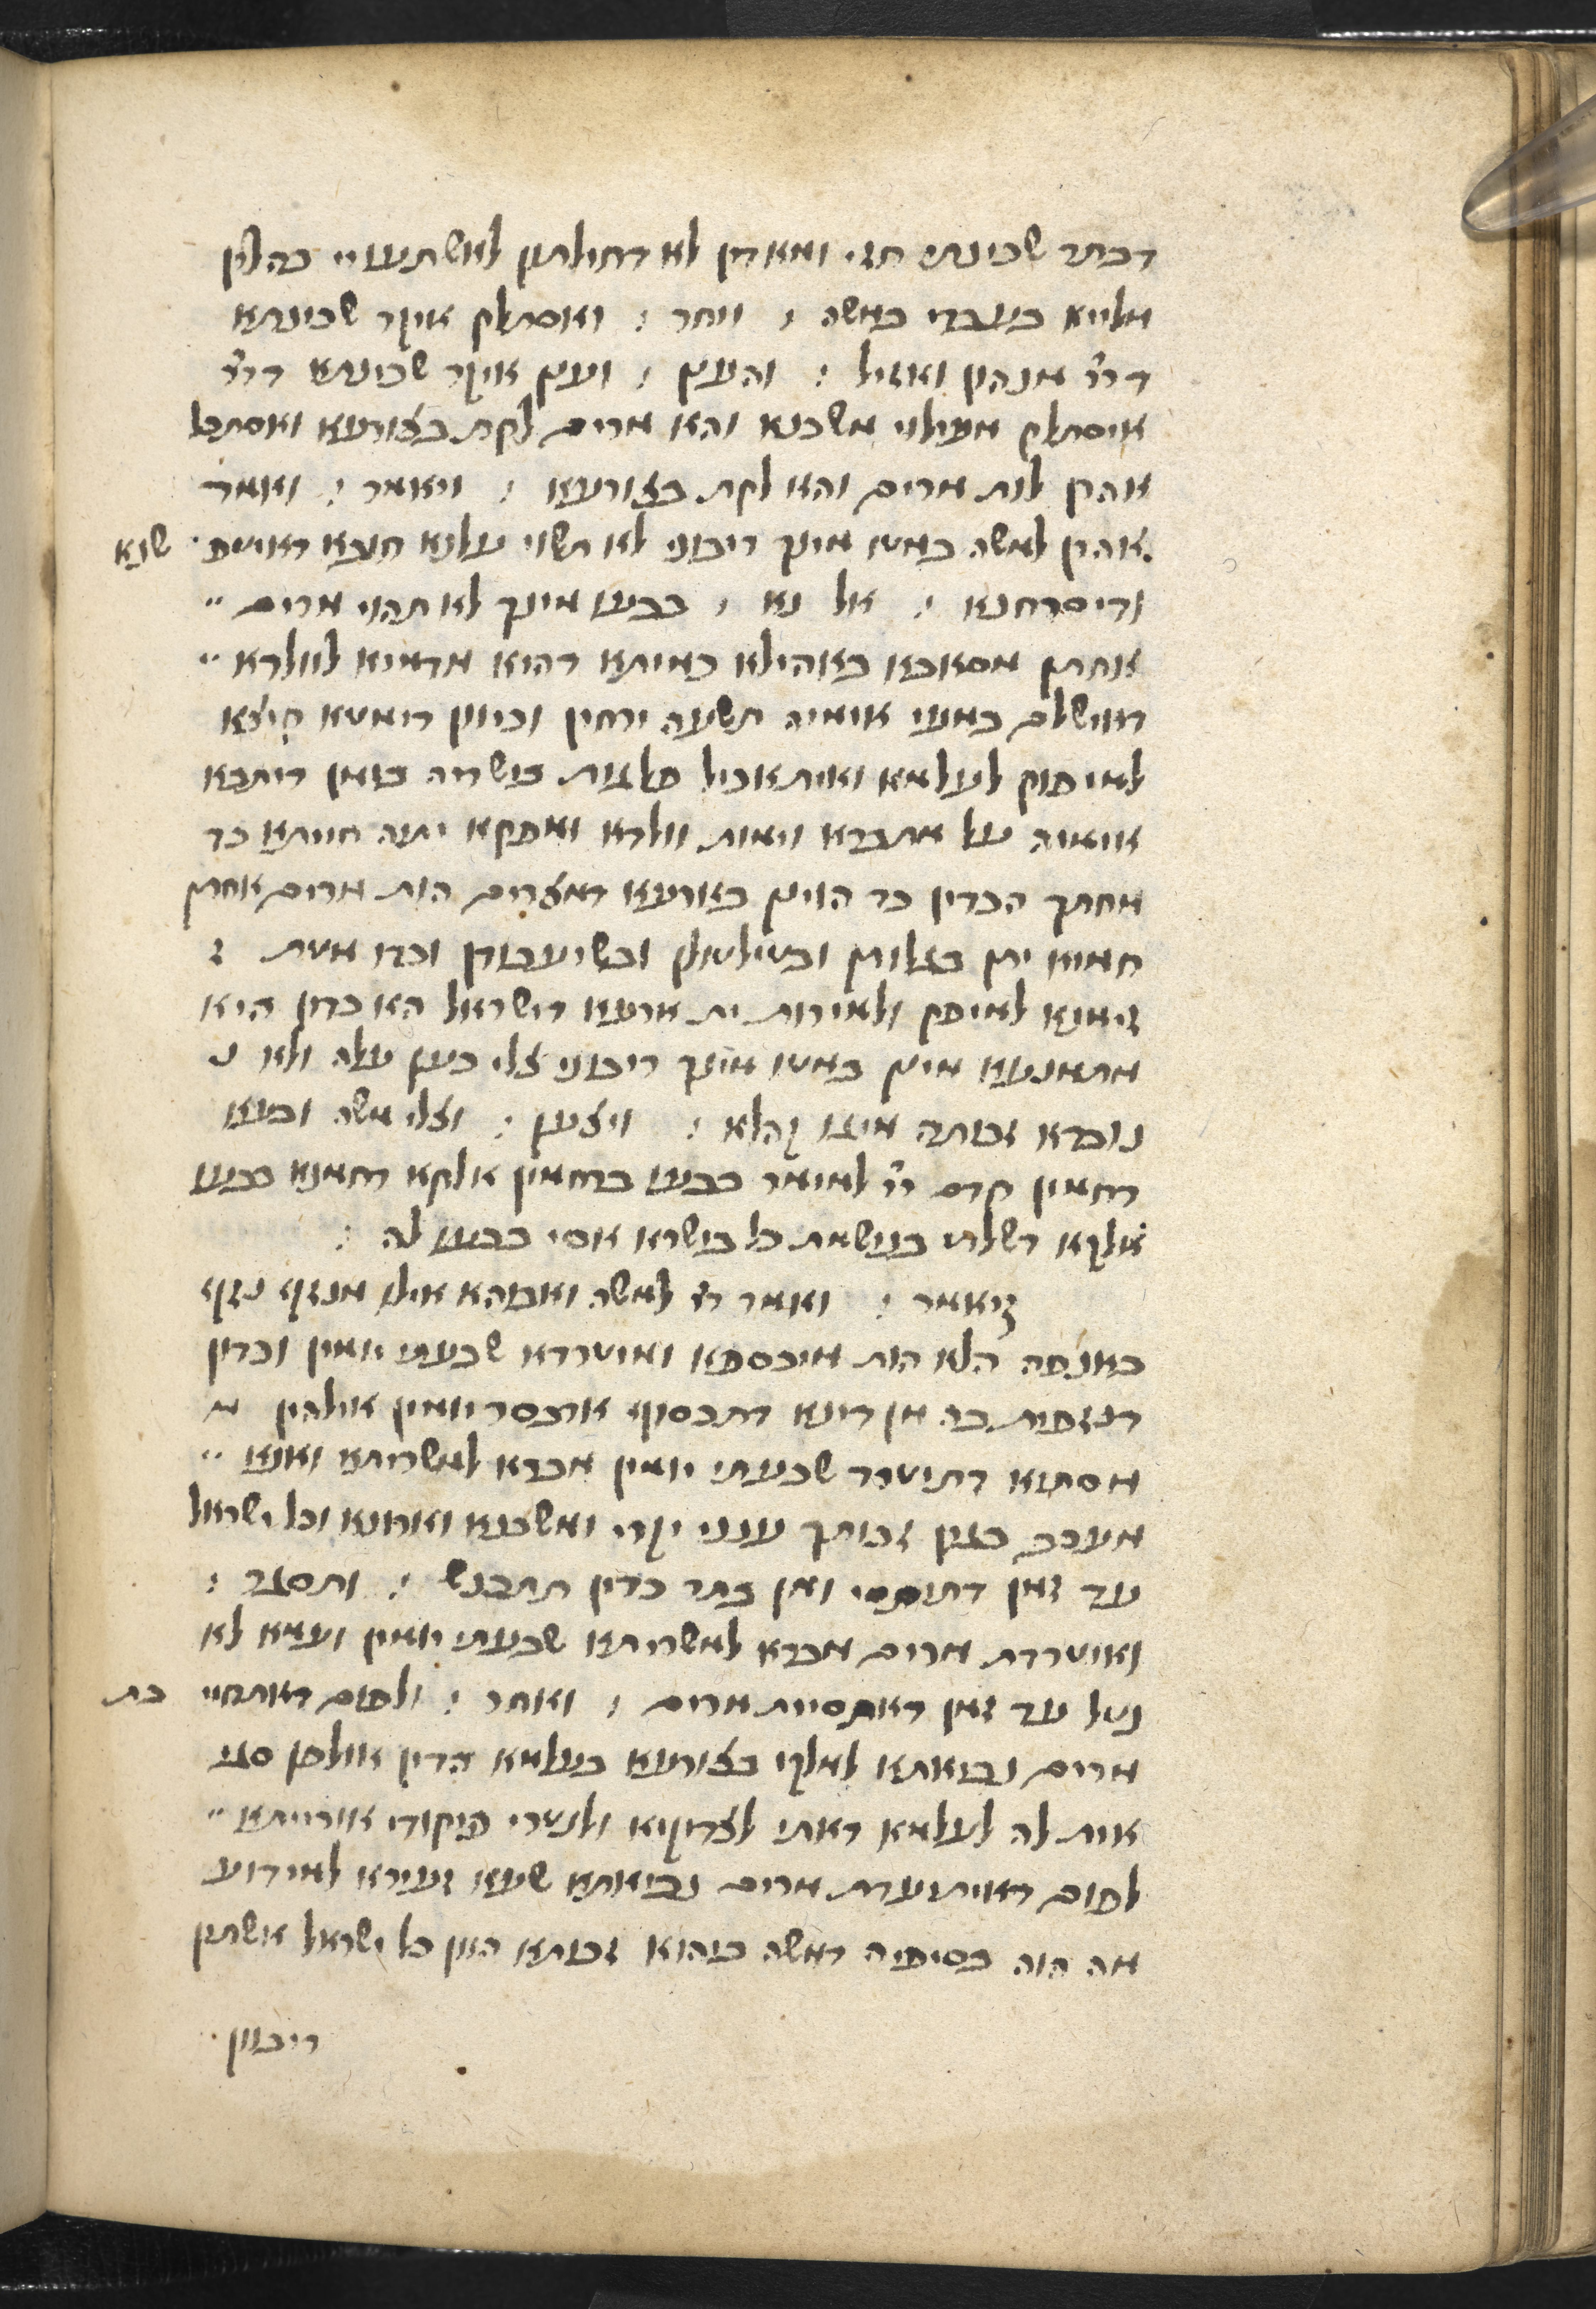 דבתר שכינתי חזי ומאדין לא דחילתון לאשתעויי כהלין
מלייא בעבדי במשה : ויחר : ואסתלק איקר שכינתא
דייי מנהון ואזיל : והענן : וענן איקר שכינתא דייי
איסתלק מעילוי משכנא והא מרים לקת בצורעא ואסתכל
אהרן לות מרים והא לקת בצורעא : ויאמר : ואמר
אהרן למשה במטו מינך ריבוני לא תשוי עלנא חובא דאיטפ׳ שנא
ודיסרחנא : אל נא : בבעו מינך לא תהוי מרים ״
אחתן מסאבא באהילא כמיתא דהיא מדמיא לוולדא ״
דאישלם במעי אימיה תשעה ירחין וכיוון דימטא קיצא
למיפוק לעלמא ואיתאכיל פלגות בישריה כומן דיתבא
אימיה על מתברא וימות וולדא ואפקא יתיה חייתא כד
מחתך הכדין כד הוינן בארעא דמצרים הות מרים אחתן
חמיא יתן בגלותן ובטילטולן ובשיעבודן וכדו מטת ז
זימנא למיפק ולמירות ית ארעא דישראל הא כדון היא
מתמנעא מינן במטו מינך ריבוני צלי כען עלה ולא נ
נוברא זכותה מיגו קהלא : ויצעק : וצלי משה ובעא
רחמין קדם ייי למימר בבעו ברחמין אלקא רחמנא בבעו
אלקא דשליט בנישמת כל בישרא אסי בבעו לה :
ויאמר : ואמר ייי למשה ואבוהא אילו מנזף נזיף
באנפה הלא הות מיכספא ומיטרדא שבעתי יומין וכדון
דנזפית בה מן דינא דתכסוף ארבסר יומין אילהין מ
מסתיא דתיטרד שבעתי יומין מברא למשריתא ואנא ״
מעכב בגין זכותך ענני יקרי ומשכנא וארונא וכל ישראל
עד זמן דתיתסי ומן בתר כדין תתכנש : ותסגר :
ואיטרדת מרים מברא למשריתא שבעתי יומין ועמא לא
נטל עד זמן דאיתסיית מרים : ואחר : ולפום דאתחיי בת
מרים נביאתא למלקי בצורעא בעלמא הדין אולפן סגי
אית לה לעלמא דאתי לצדיקיא ולנטרי פיקודי אורייתא ״
לפום דאיתעדת מרים נביאתא שעא זעירא למידוע
מה הוה בסיפיה דמשה בההוא זכותא הוון כל ישראל אשתין
ריבוון